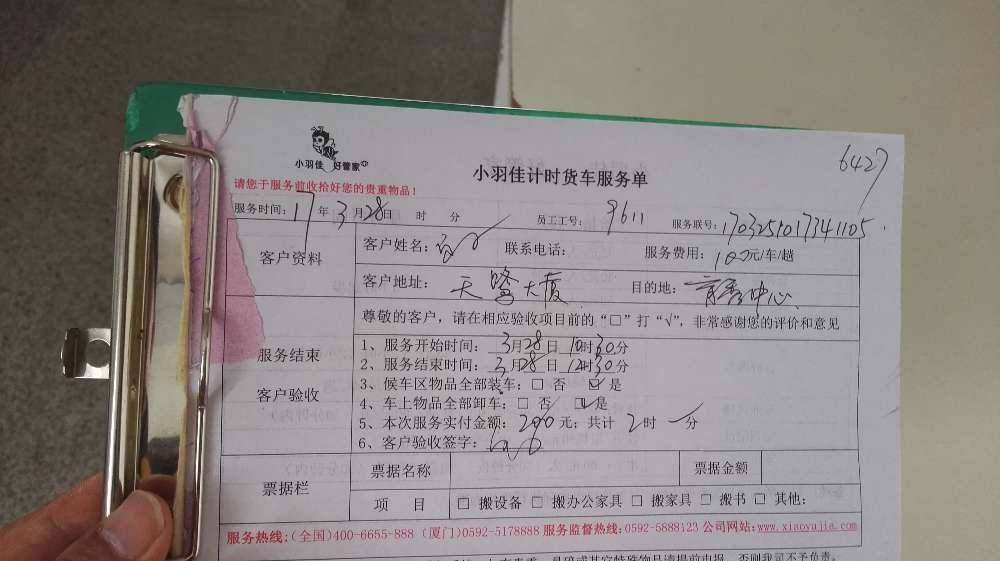 小羽佳 好管家
小羽佳计时货车服务单
6427
请您于服务前收拾好您的贵重物品！
服务时间：17年3月28日 时 分 员工工号：9611 服务联号：1703251017341105
客户资料
客户姓名： 联系电话： 服务费用：100元/车/趟
客户地址：天鹭大厦 目的地：育秀中心
尊敬的客户，请在相应验收项目前的“□”打“√”，非常感谢您的评价和意见
服务结束
客户验收
1、服务开始时间：3月28日10时30分
2、服务结束时间：3月28日12时30分
3、候车区物品全部装车：□ 否 ☑ 是
4、车上物品全部卸车：□ 否 ☑ 是
5、本次服务实付金额：200元；共计 2时 一分
6、客户验收签字：
票据栏
票据名称 票据金额
项 目 □ 搬设备 □ 搬办公家具 □ 搬家具 □ 搬书 □ 其他：
服务热线：(全国)400-6655-888 (厦门)0592-5178888 服务监督热线：0592-5888123 公司网站：www.xiaoyujia.com
易碎或其它特殊物品请提前申报，否则我司不予负责。